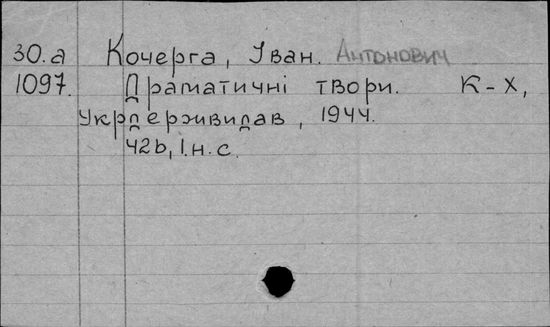 30.a Кочерга, Іван. Антонович
1097. Драматичні твори. К-Х,
Укрдержвидав, 1944.
426, 1.н.с.